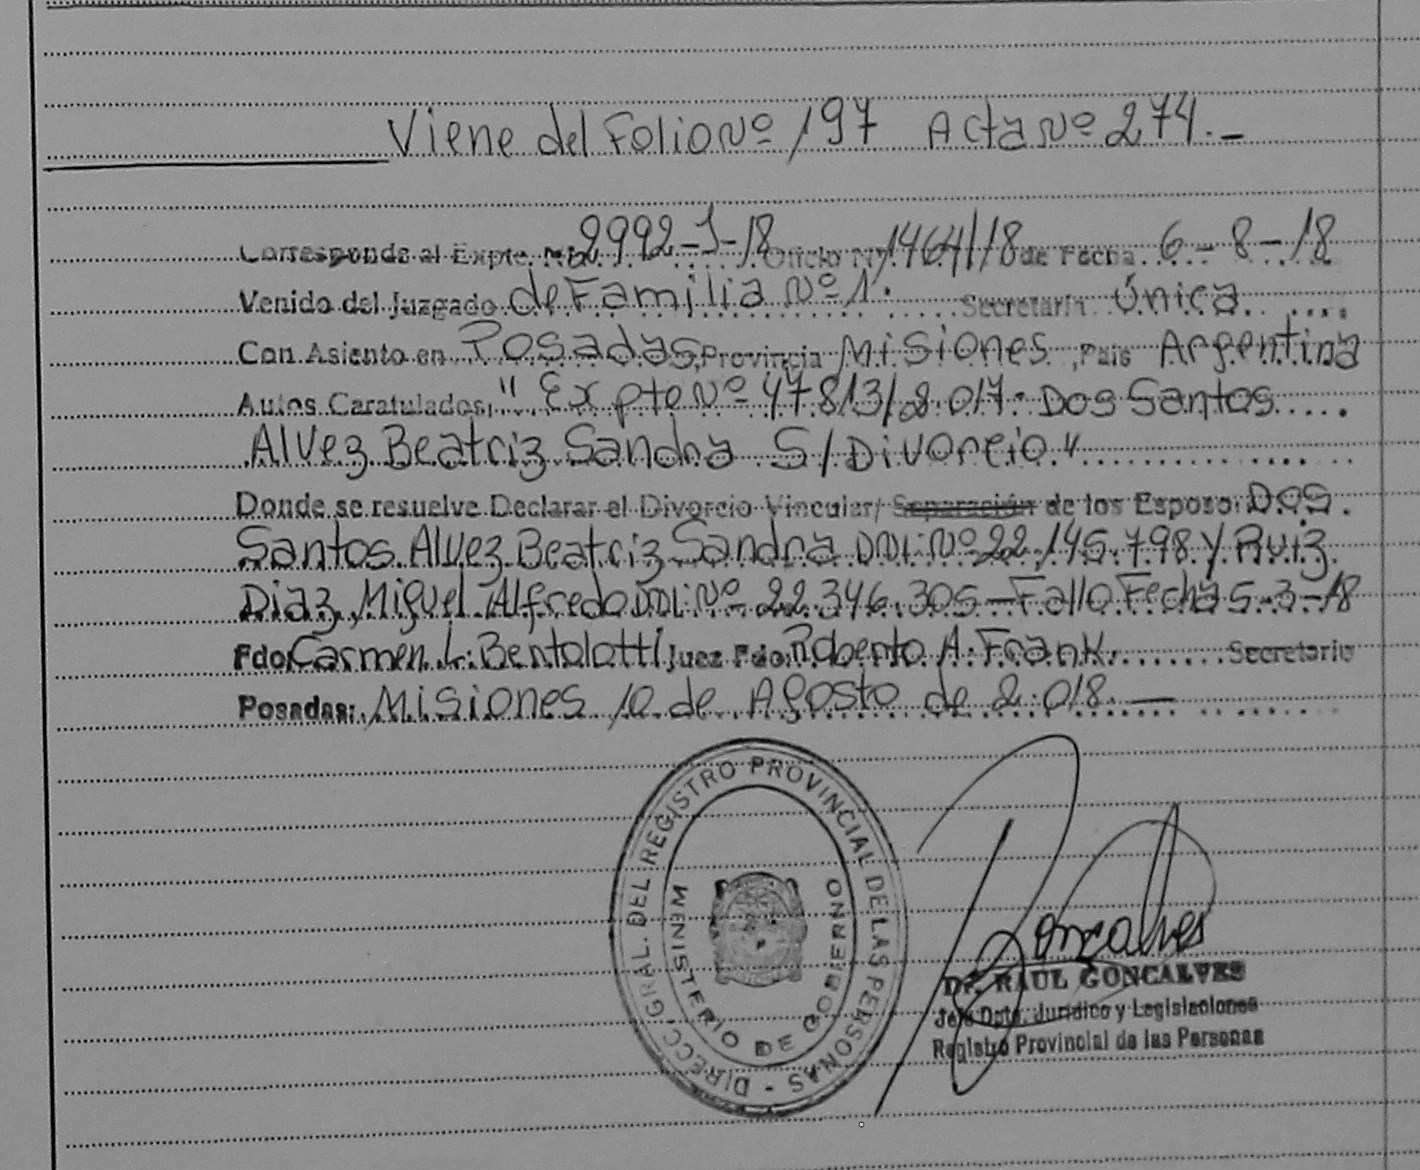 Viene del Folio Nº 197 Acta Nº 274.-
Corresponde al Expte. Nº 2992-J-18 Oficio Nº 1464/18 de Fecha 6-8-18
Venido del Juzgado de Familia Nº 1. Secretaría Única
Con Asiento en Posadas, Provincia Misiones, País Argentina
Autos Caratulados, "Expte Nº 47813/2.017. Dos Santos
Alvez Beatriz Sandra S/Divorcio"
Donde se resuelve Declarar el Divorcio Vincular/ Separación de los Esposo: Dos
Santos Alvez Beatriz Sandra DNI: Nº 22.145.798 y Ruiz
Diaz, Miguel Alfredo DNI: Nº 22.346.305 - Fallo Fecha 5-3-18
Fdo Carmen L. Bentolotti Juez Fdo. Roberto A. Frank. Secretario
Posadas: Misiones 10 de Agosto de 2.018.-
DIRECC. GRAL. DEL REGISTRO PROVINCIAL DE LAS PERSONAS -
MINISTERIO DE GOBIERNO
Goncalves
Dr. RAUL GONCALVES
Jefe Dpto. Jurídico y Legislaciones
Registro Provincial de las Personas